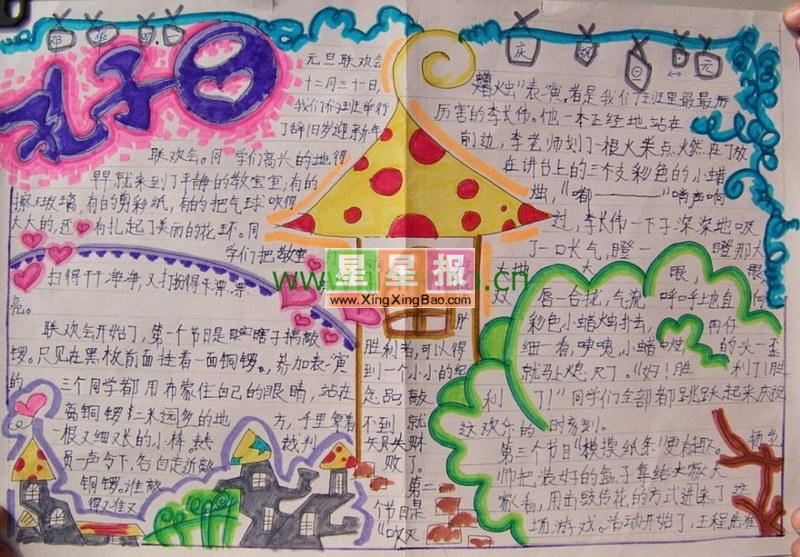 孔子曰
庆 祝 元
元旦联欢会
十二月三十一日,
我们班举行
了辞旧岁迎新年
联欢会。同学们高兴的地得
早就来到了平静的教室里,有的
擦玻璃,有的剪彩纸,有的把气球吹得
大大的,还有扎起了美丽的花环。同
学们把教室
扫得干干净净,又打扮得漂漂
亮。
联欢会开始了,第一个节目是瞎子摸敲
锣。只见在黑板前面挂着一面铜锣,参加表演
的三个同学都用布蒙住自己的眼睛,站在
离铜锣 米远的地方,手里拿着
一根又细又长的小棒。裁判
员一声令下,各自走近敲
铜锣。谁敲
得又准又
胜利者,可以得
到一个小小的纪
念品,敲
不到就
失败
了。
第二
个节目是
“吹灭
蜡烛”表演。看是我们班里最最最
厉害的李长伟。他一本正经地站在
前边,李老师划了一根火柴点火燃
在讲台上的三个支彩色的小蜡
烛,“嘟——”哨声响
过,李长伟一下子深深地吸
了一口大气,瞪
眼,眼
双唇一台拢,气流呼呼地直向
彩色小蜡烛扑去,
细一看,咦咦,小蜡 的头一歪
就马上熄灭了。“好!胜利了!胜
利了!”同学们全部都跳跃起来庆祝
这欢乐的时刻到。
第三个节目“模摸纸条”更有趣。
师把装好的盒子拿给大家
家看,用击鼓传花的方式进来了这
场游戏。活动开始了,王程
星星报
www.XingXingBao.com